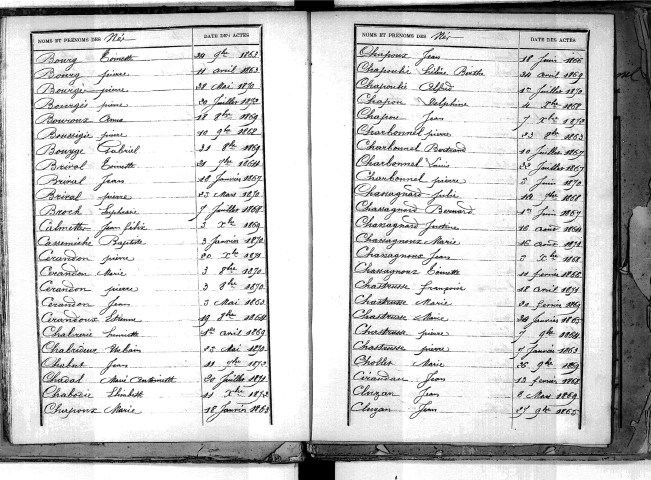 NOMS ET PRÉNOMS DES Nés DATE DES ACTES
Bourg 29 9bre 1863
Bourg pierre 11 avril 1863
Bourgés pierre 28 Mai 1870
Bourgés pierre 20 Juillet 1872
Bouroux 18 8bre 1869
Boussigés pierre 10 9bre 1868
Bouyge Gabriel 21 8bre 1869
Brival 21 7bre 1864
Brival Jean 18 Janvier 1867
Brival pierre 23 Mars 1870
Broch 7 Juillet 1868
Calmettes Jean 3 Xbre 1869
Baptiste 3 Janvier 1872
Cerandon pierre 20 Xbre 1871
Cerandon Marie 3 8bre 1870
Cerandon pierre 3 8bre 1870
Cerandon Jean 3 Mai 1863
Cerandoux Etienne 19 8bre 1864
Chabrerie avril 1869
Chabrideux Urbain 23 Mai 1872
Chabut Jean 11 1873
Chadal Marie Antoinette 20 Juillet 1871
Elisabeth 11 Xbre 1872
Chapoux Marie 18 Janvier 1863
NOMS ET PRÉNOMS DES Nés DATE DES ACTES
Chapoux Jean 18 Juin 1866
Chapoulié Berthe 24 avril 1869
Chapoulié Alfred Juillet 1870
Chapou Delphine 4 1868
Chapou Jean 7 Xbre 1870
Charbonnel pierre 23 8bre 1863
Charbonnel Bertrand 10 Juillet 1867
Charbonnel Louis 22 Juillet 1867
Charbonnel pierre 5 Juin 1870
Chassagnard Julie 14 1868
Chassagnard Bernard Juin 1867
Chassagnard Justine 16 Août 1864
Chassagnoux Marie 16 Août 1871
Chassagnoux Jean 3 Xbre 1868
Chassagnoux 11 février 1866
Chastrusse Françoise 18 avril 1871
Chastrusse Marie 20 février 1864
Chastrusse Marie 24 Janvier 1865
Chastrusse pierre 7 9bre 1864
Chastrusse pierre 7 Janvier 1863
Chollet Marie 25 9bre 1869
Cérandon Jean 13 février 1868
Clauzan Jean 8 Mars 1869
Clauzan Jean 27 9bre 1865